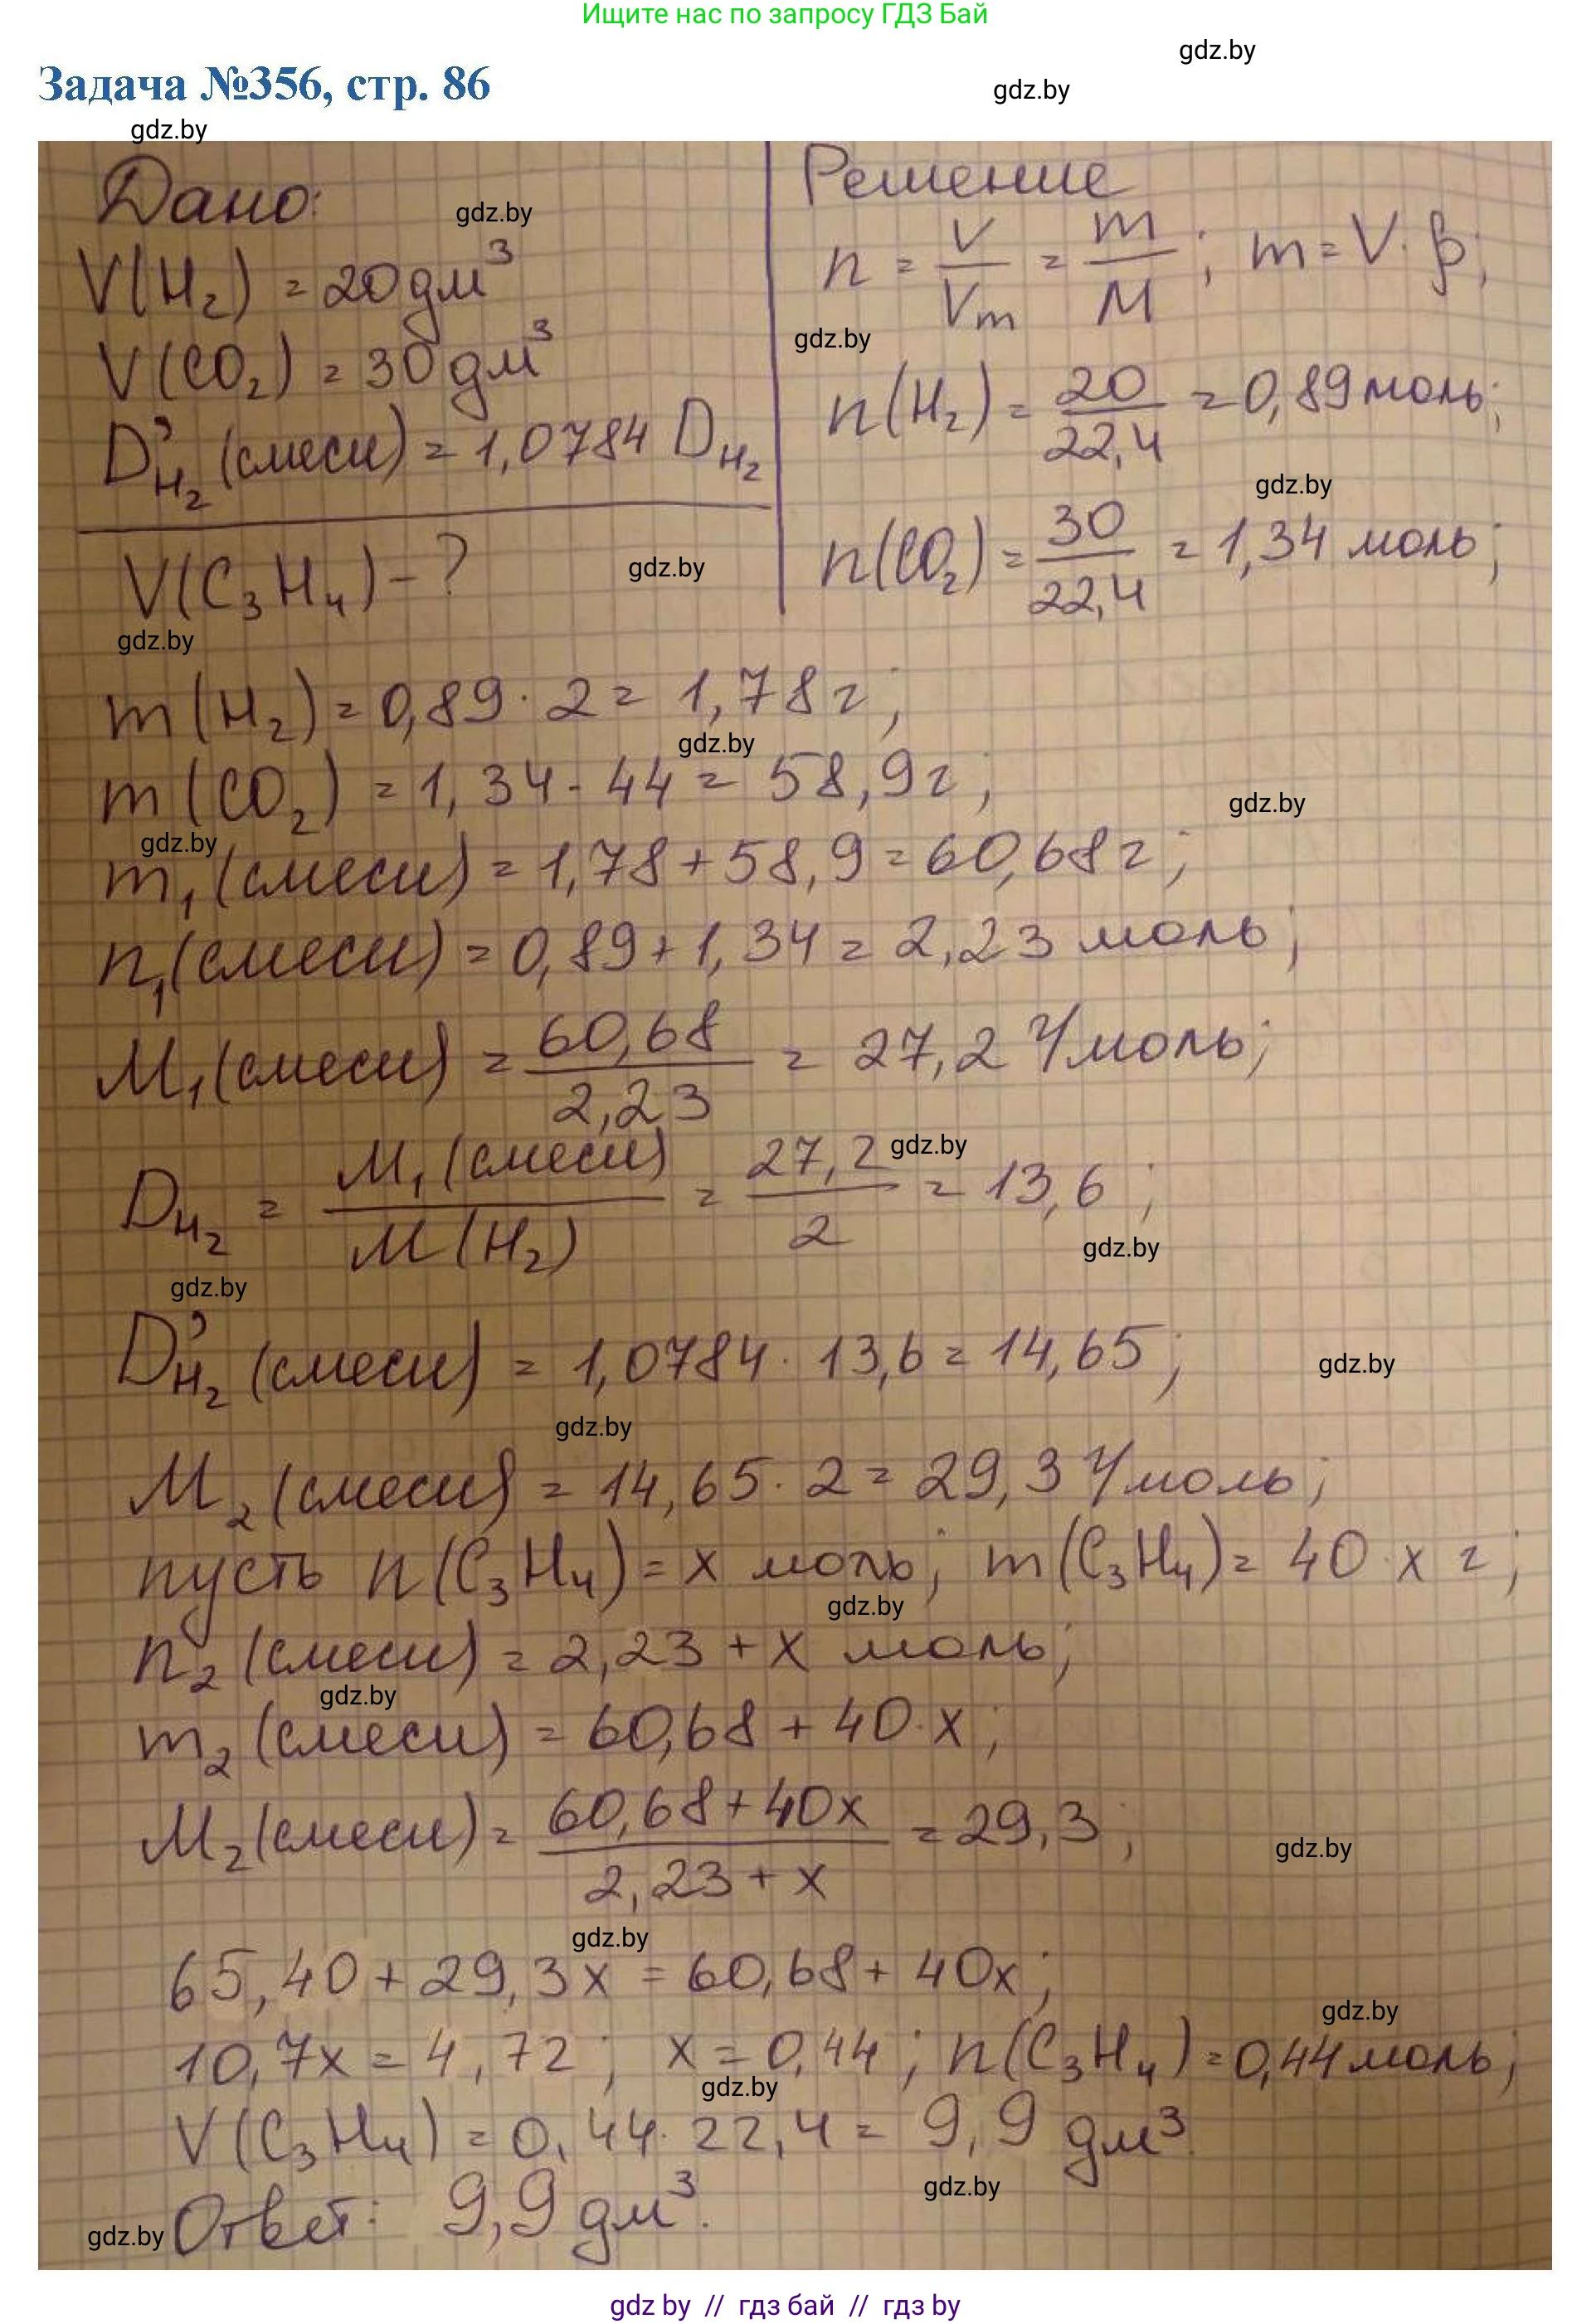 Ищите нас по запросу ГДЗ Бай
gdz.by
Задача №356, стр. 86
gdz.by
gdz.by
Дано:
gdz.by
V(H₂) = 20 дм³
V(CO₂) = 30 дм³
D'H₂ (смеси) = 1,0784 DH₂
V(C₃H₄) - ?
gdz.by
gdz.by
Решение
n = V/Vm = m/M; m = V · ρ;
gdz.by
n(H₂) = 20/22,4 = 0,89 моль;
gdz.by
n(CO₂) = 30/22,4 = 1,34 моль;
m(H₂) = 0,89 · 2 = 1,78 г;
gdz.by
m(CO₂) = 1,34 · 44 = 58,9 г;
gdz.by
gdz.by
m₁(смеси) = 1,78 + 58,9 = 60,68 г;
n₁(смеси) = 0,89 + 1,34 = 2,23 моль;
M₁(смеси) = 60,68/2,23 = 27,2 г/моль;
gdz.by
DH₂ = M₁(смеси)/M(H₂) = 27,2/2 = 13,6;
gdz.by
gdz.by
D'H₂ (смеси) = 1,0784 · 13,6 = 14,65;
gdz.by
gdz.by
M₂(смеси) = 14,65 · 2 = 29,3 г/моль;
пусть n(C₃H₄) = x моль; m(C₃H₄) = 40 · x г;
gdz.by
n₂(смеси) = 2,23 + x моль;
gdz.by
m₂(смеси) = 60,68 + 40 · x;
M₂(смеси) = 60,68 + 40x/2,23 + x = 29,3;
gdz.by
gdz.by
65,40 + 29,3x = 60,68 + 40x;
gdz.by
10,7x = 4,72; x = 0,44; n(C₃H₄) = 0,44 моль;
gdz.by
V(C₃H₄) = 0,44 · 22,4 = 9,9 дм³.
gdz.by
Ответ: 9,9 дм³.
gdz.by
gdz by // гдз бай // гдз by